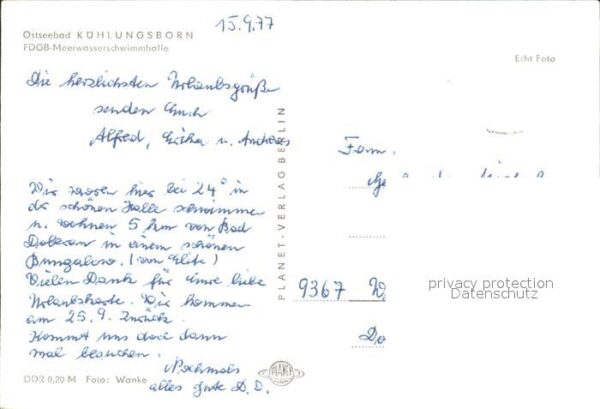 15.9.77
Ostseebad KÜHLUNGSBORN
FDGB-Meerwasserschwimmhalle
Echt Foto
Die herzlichsten Urlaubsgrüße
senden Euch
Alfred, u. Andreas
Fam.
Wir waren hier bei 24° in
der schönen Halle schwimmen
u. wohnen 5 km von Bad
Doberan in einem schönen
Bungalow. (von Elite)
Vielen Dank für Eure liebe
Urlaubskarte. Wir kommen
am 25.9. zurück.
Kommt uns doch dann
mal besuchen.
Nochmals
alles Gute D.O.
PLANET-VERLAG BERLIN
9367 W
Do
privacy protection
Datenschutz
PLANET
DDR 0,20 M Foto: Wanke